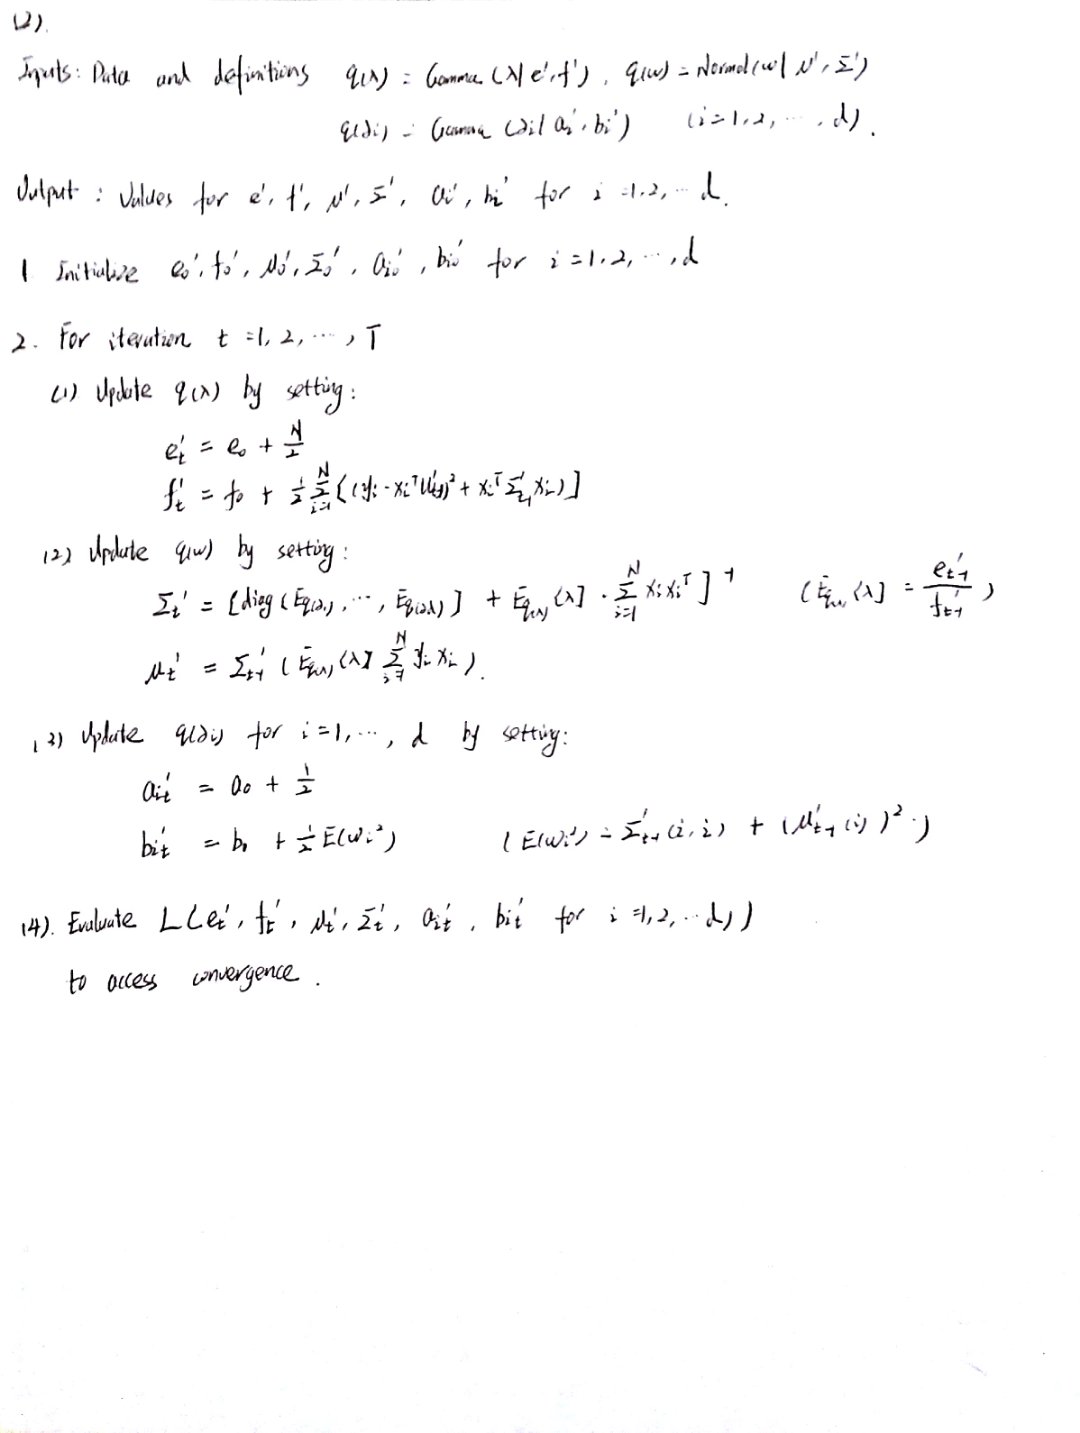 (2).
Inputs: Data and definitions q(λ) = Gamma (λ| e', f'), q(w) = Normal(w| μ', Σ')
q(αi) = Gamma (αi| ai', bi') (i=1,2, ..., d).
Output: Values for e', f', μ', Σ', ai', bi' for i=1,2, ... d.
1 Initialize e0', f0', μ0', Σ0', ai0', bi0' for i=1,2, ..., d
2. For iteration t=1, 2, ..., T
(1) Update q(λ) by setting:
et' = e0 + N/2
ft' = f0 + 1/2 Σ_{i=1}^{N} [(yi - xi^T μ't-1)² + xi^T Σ't-1 xi)]
(2) Update q(w) by setting:
Σt' = [diag (Eq(α1), ..., Eq(αd)] + Eq(λ) [λ] · Σ_{i=1}^{N} xi xi^T ]^-1 (Eq(λ) [λ] = e't-1 / f't-1)
μt' = Σt-1' (Eq(λ) [λ] Σ_{i=1}^{N} yi xi).
(3) Update q(αi) for i=1, ..., d by setting:
ait' = a0 + 1/2
bit' = b0 + 1/2 E(wi²) (E(wi²) = Σ't-1 (i,i) + (μ't-1 (i))².)
(4). Evaluate L(et', ft', μt', Σt', ait', bit' for i=1,2, ... d))
to access convergence.